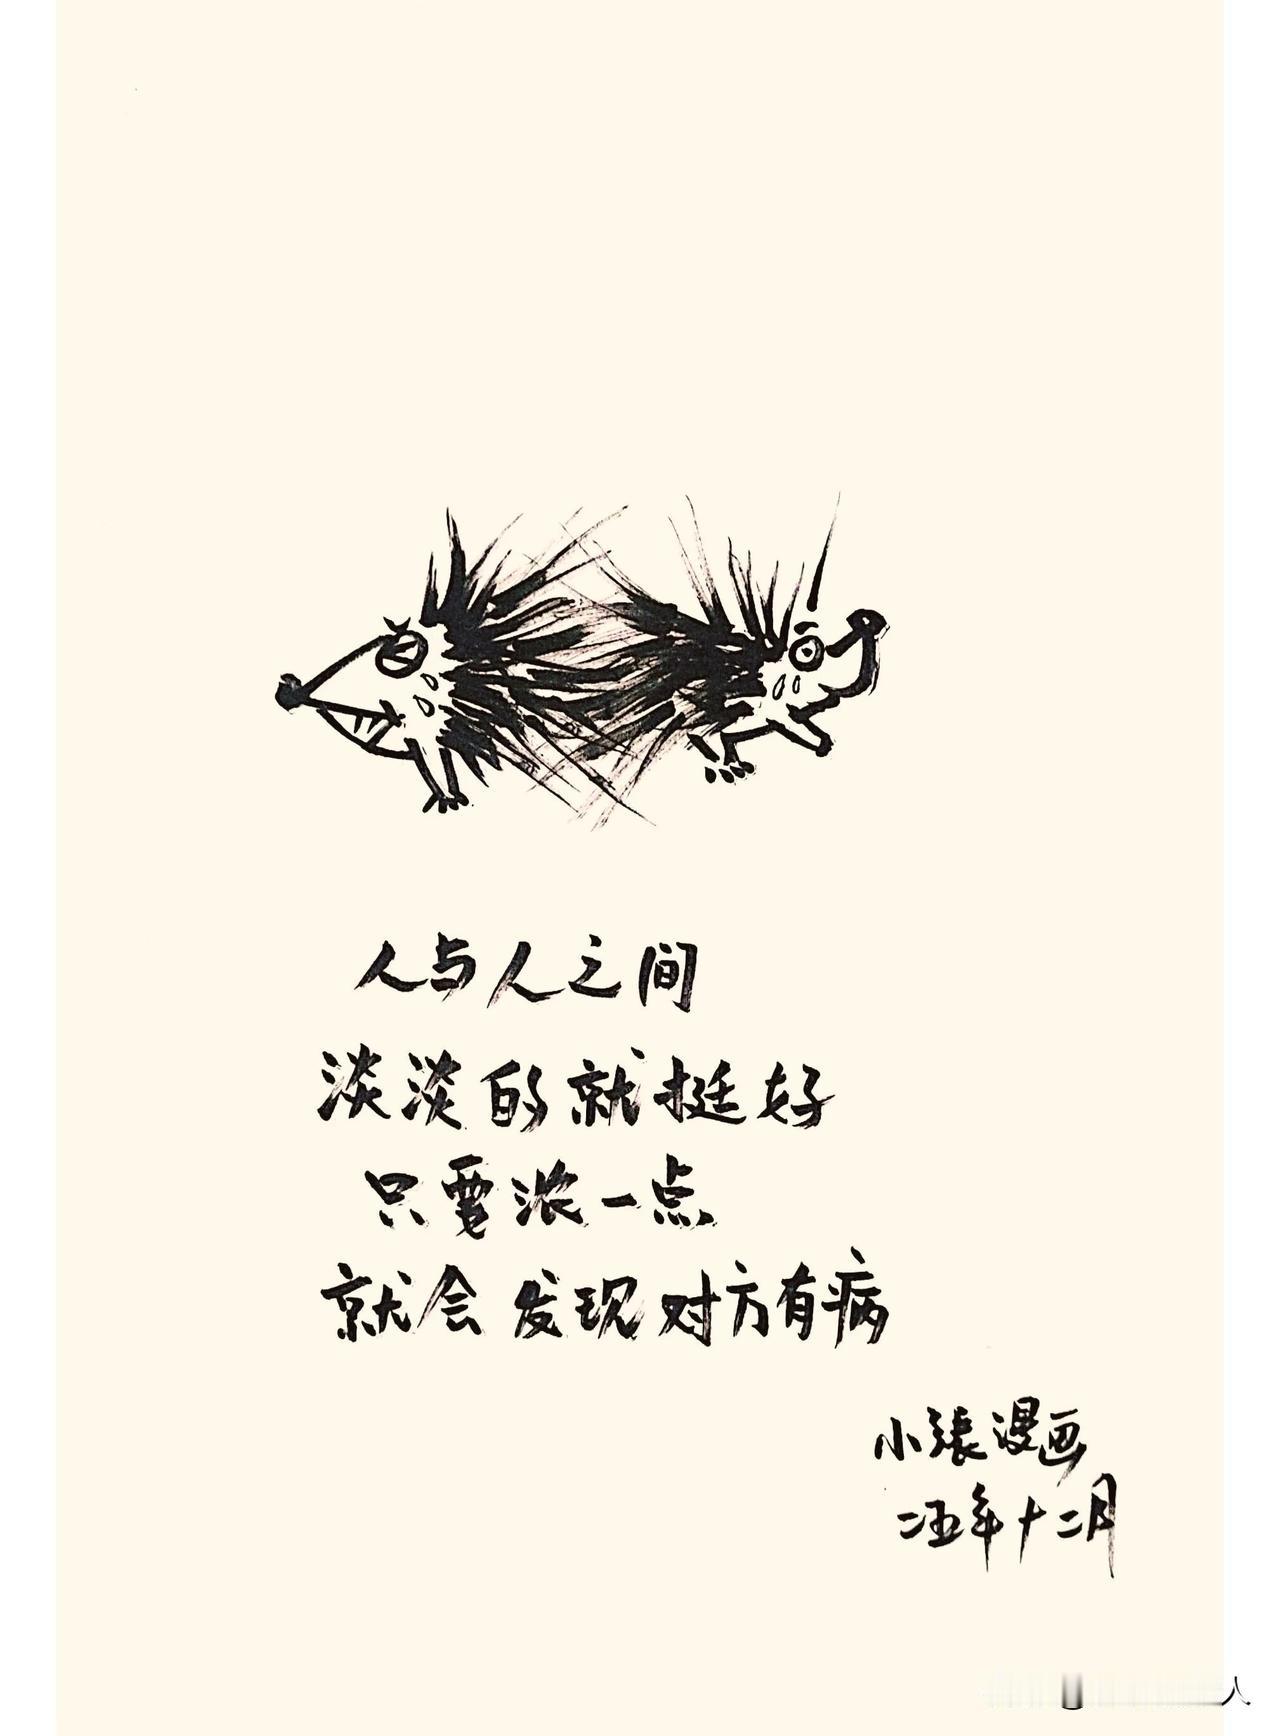 人与人之间
淡淡的就挺好
只要浓一点
就会发现对方有病
小張漫画
二五年十二月
人